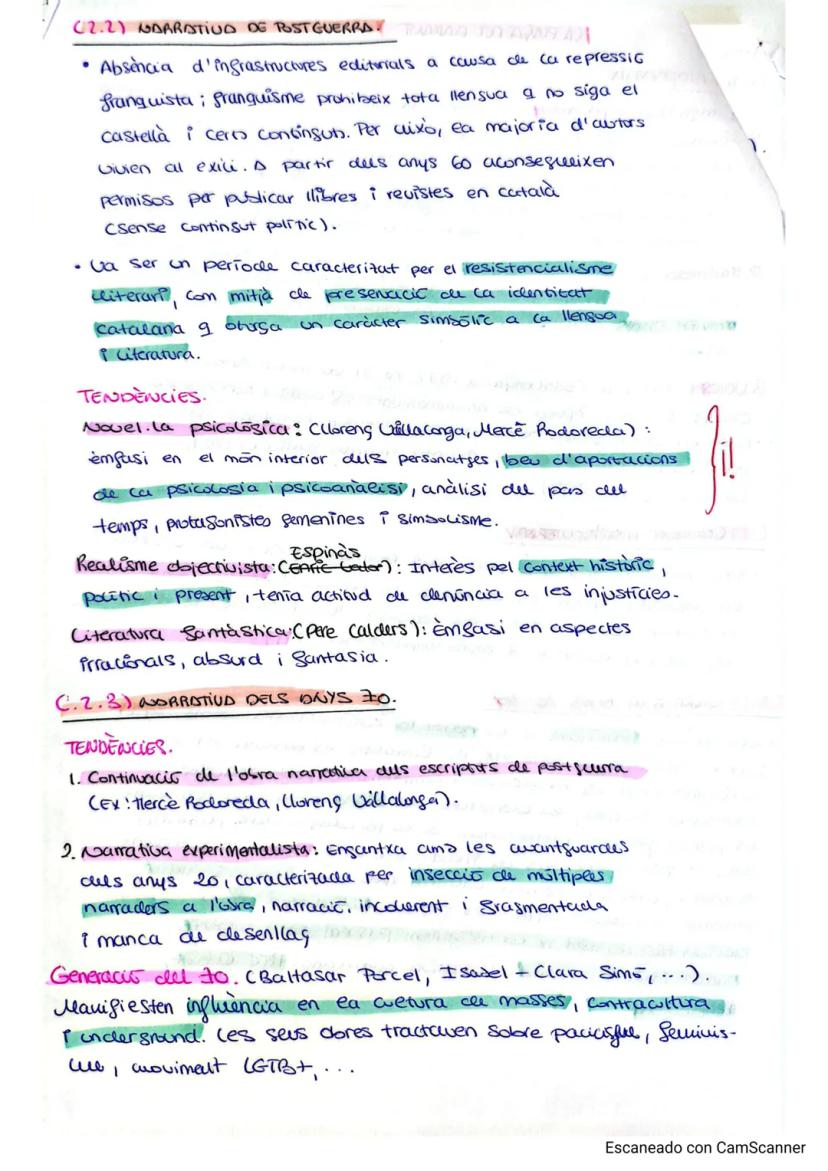 C.2.2) NARRATIVA DE POSTGUERRA.
• Absència d'infrastructures editorials a causa de la repressió
franquista; franquisme prohibeix tota llengua q no siga el
castellà i certs continguts. Per això, la majoria d'autors
vivien al exili. A partir dels anys 60 aconsegueixen
permisos per publicar llibres i revistes en català
(sense contingut polític).
• Va ser un període caracteritzat per el resistencialisme
literari, com mitjà de preservació de la identitat
catalana q otorga un caràcter simbòlic a la llengua
i literatura.
TENDÈNCIES.
Novel·la psicològica: (Llorenç Villalonga, Mercè Rodoreda):
èmfasi en el món interior dels personatges, beu d'aportacions
de la psicologia i psicoanàlisi, anàlisi del pas del
temps, protagonistes femenines i simbolisme.
¡!
Espinàs
Realisme objectivista: (): Interès pel context històric,
polític i present, tenia actitud de denúncia a les injustícies.
Literatura fantàstica: (Pere Calders): Èmfasi en aspectes
irracionals, absurd i fantasia.
C.2.3) NARRATIVA DELS ANYS 70.
TENDÈNCIES.
1. Continuació de l'obra narrativa dels escriptors de postguerra
(Ex: Mercè Rodoreda, Llorenç Villalonga).
2. Narrativa experimentalista: Enganxa amb les avantguardes
dels anys 20, caracteritzada per inserció de múltiples
narradors a l'obra, narració incoherent i fragmentada
i manca de desenllaç
Generació del 70. (Baltasar Porcel, Isabel + Clara Simó, ...).
Manifiesten influència en la cultura de masses, contracultura
i underground. Les seus obres tractaven sobre pacifisme, feminis-
me, moviment LGTB+, ...
Escaneado con CamScanner